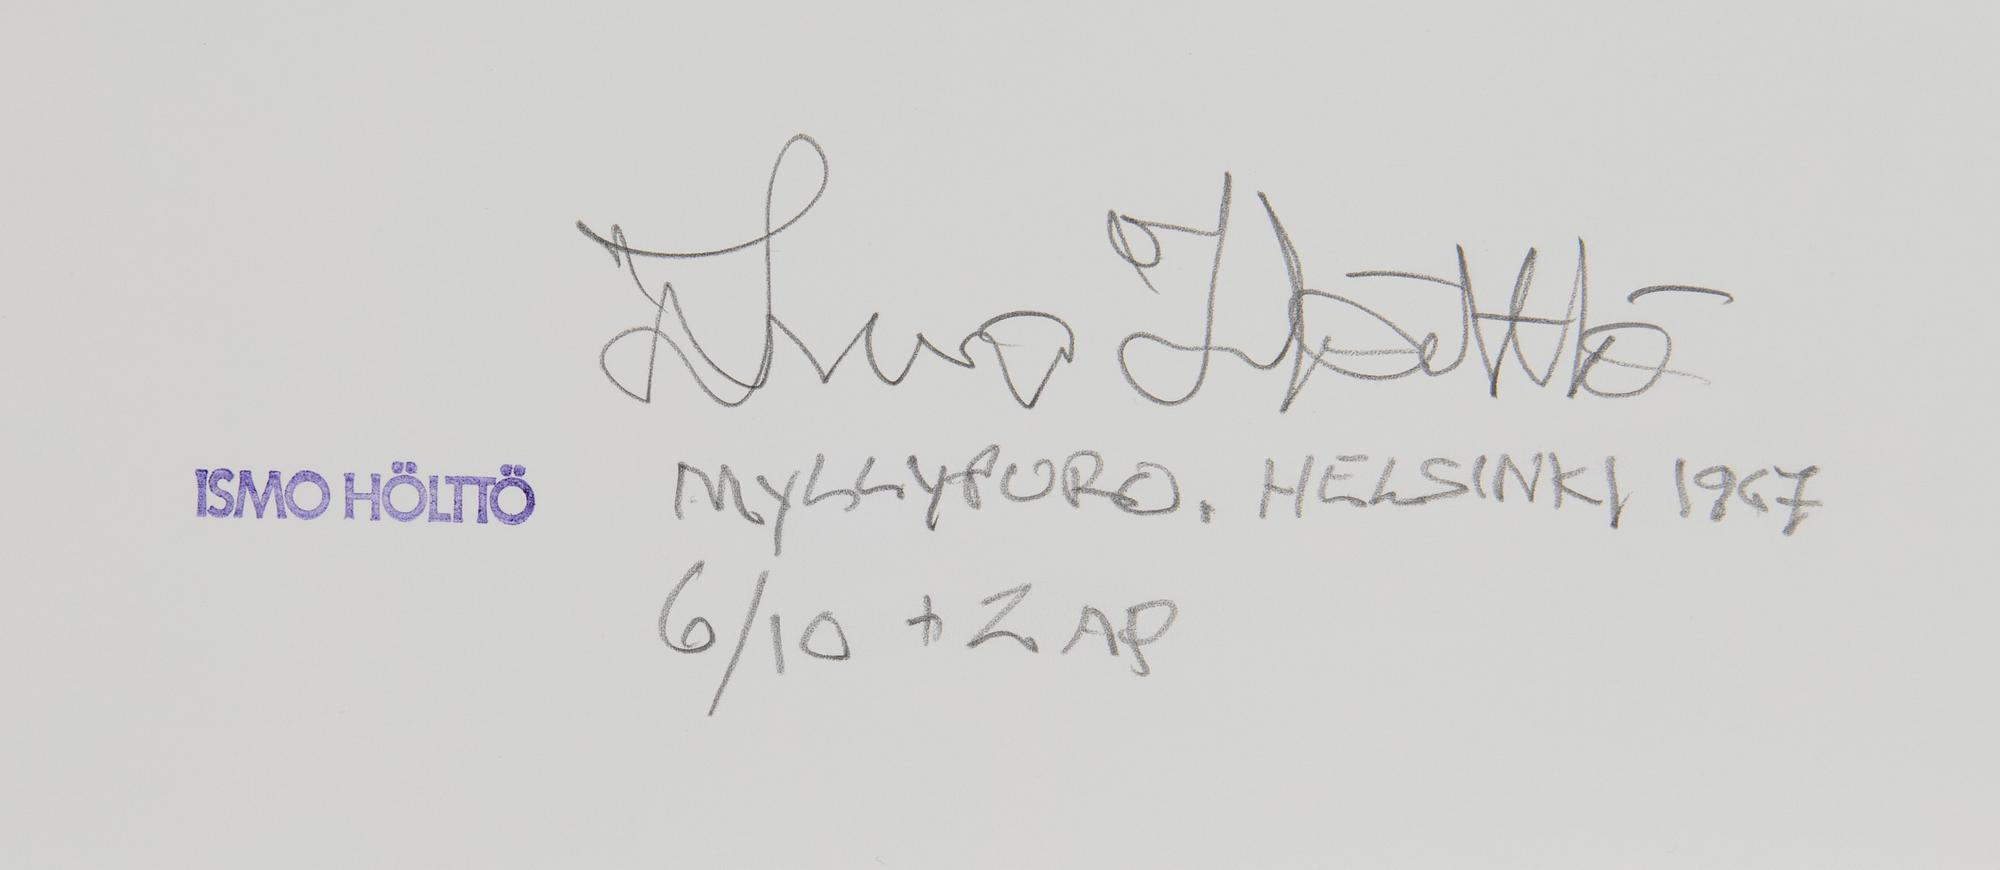 Ismo Hölttö
ISMO HÖLTTÖ
MYLLYPURO, HELSINKI, 1967
6/10 + 2 AP